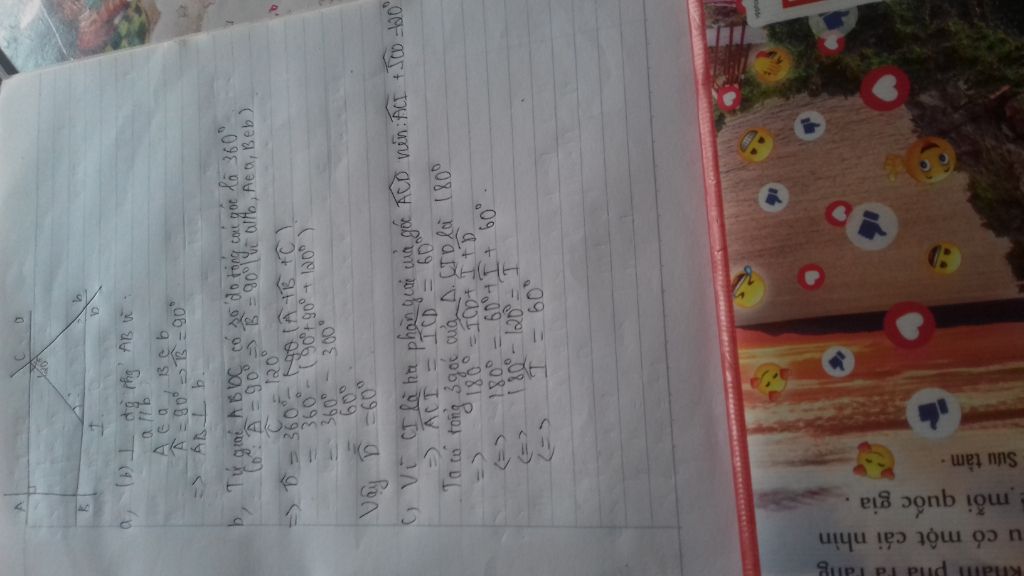 A
C
a
120°
B
I
D
b
a, (b) ⊥ AB vì:
a // b
A ∈ a, B ∈ b
Â = 90° => B̂ = 90°
=> AB ⊥ b.
b, Tứ giác ABDC có số đo tổng các góc là 360°
Có: Â = 90° => B̂ = 90° (vì a//b, A∈a, B∈b)
Ĉ = 120°
=> D̂ = 360° - (Â + B̂ + Ĉ)
= 360° - (90° + 90° + 120°)
= 360° - 300°
= 60°
Vậy D̂ = 60°
c, Vì CI là tia phân giác của góc ACD nên: ACI + ICD = 120°
=> ACI = ICD = 60°
Ta có tổng 3 góc của Δ CID là 180°
=> 180° = ICD + I + D
<=> 180° = 60° + I + 60°
<=> 180° - 120° = I
<=> I = 60°
khám phá ra rằng
u có một cái nhìn
mỗi quốc gia.
Sưu tầm